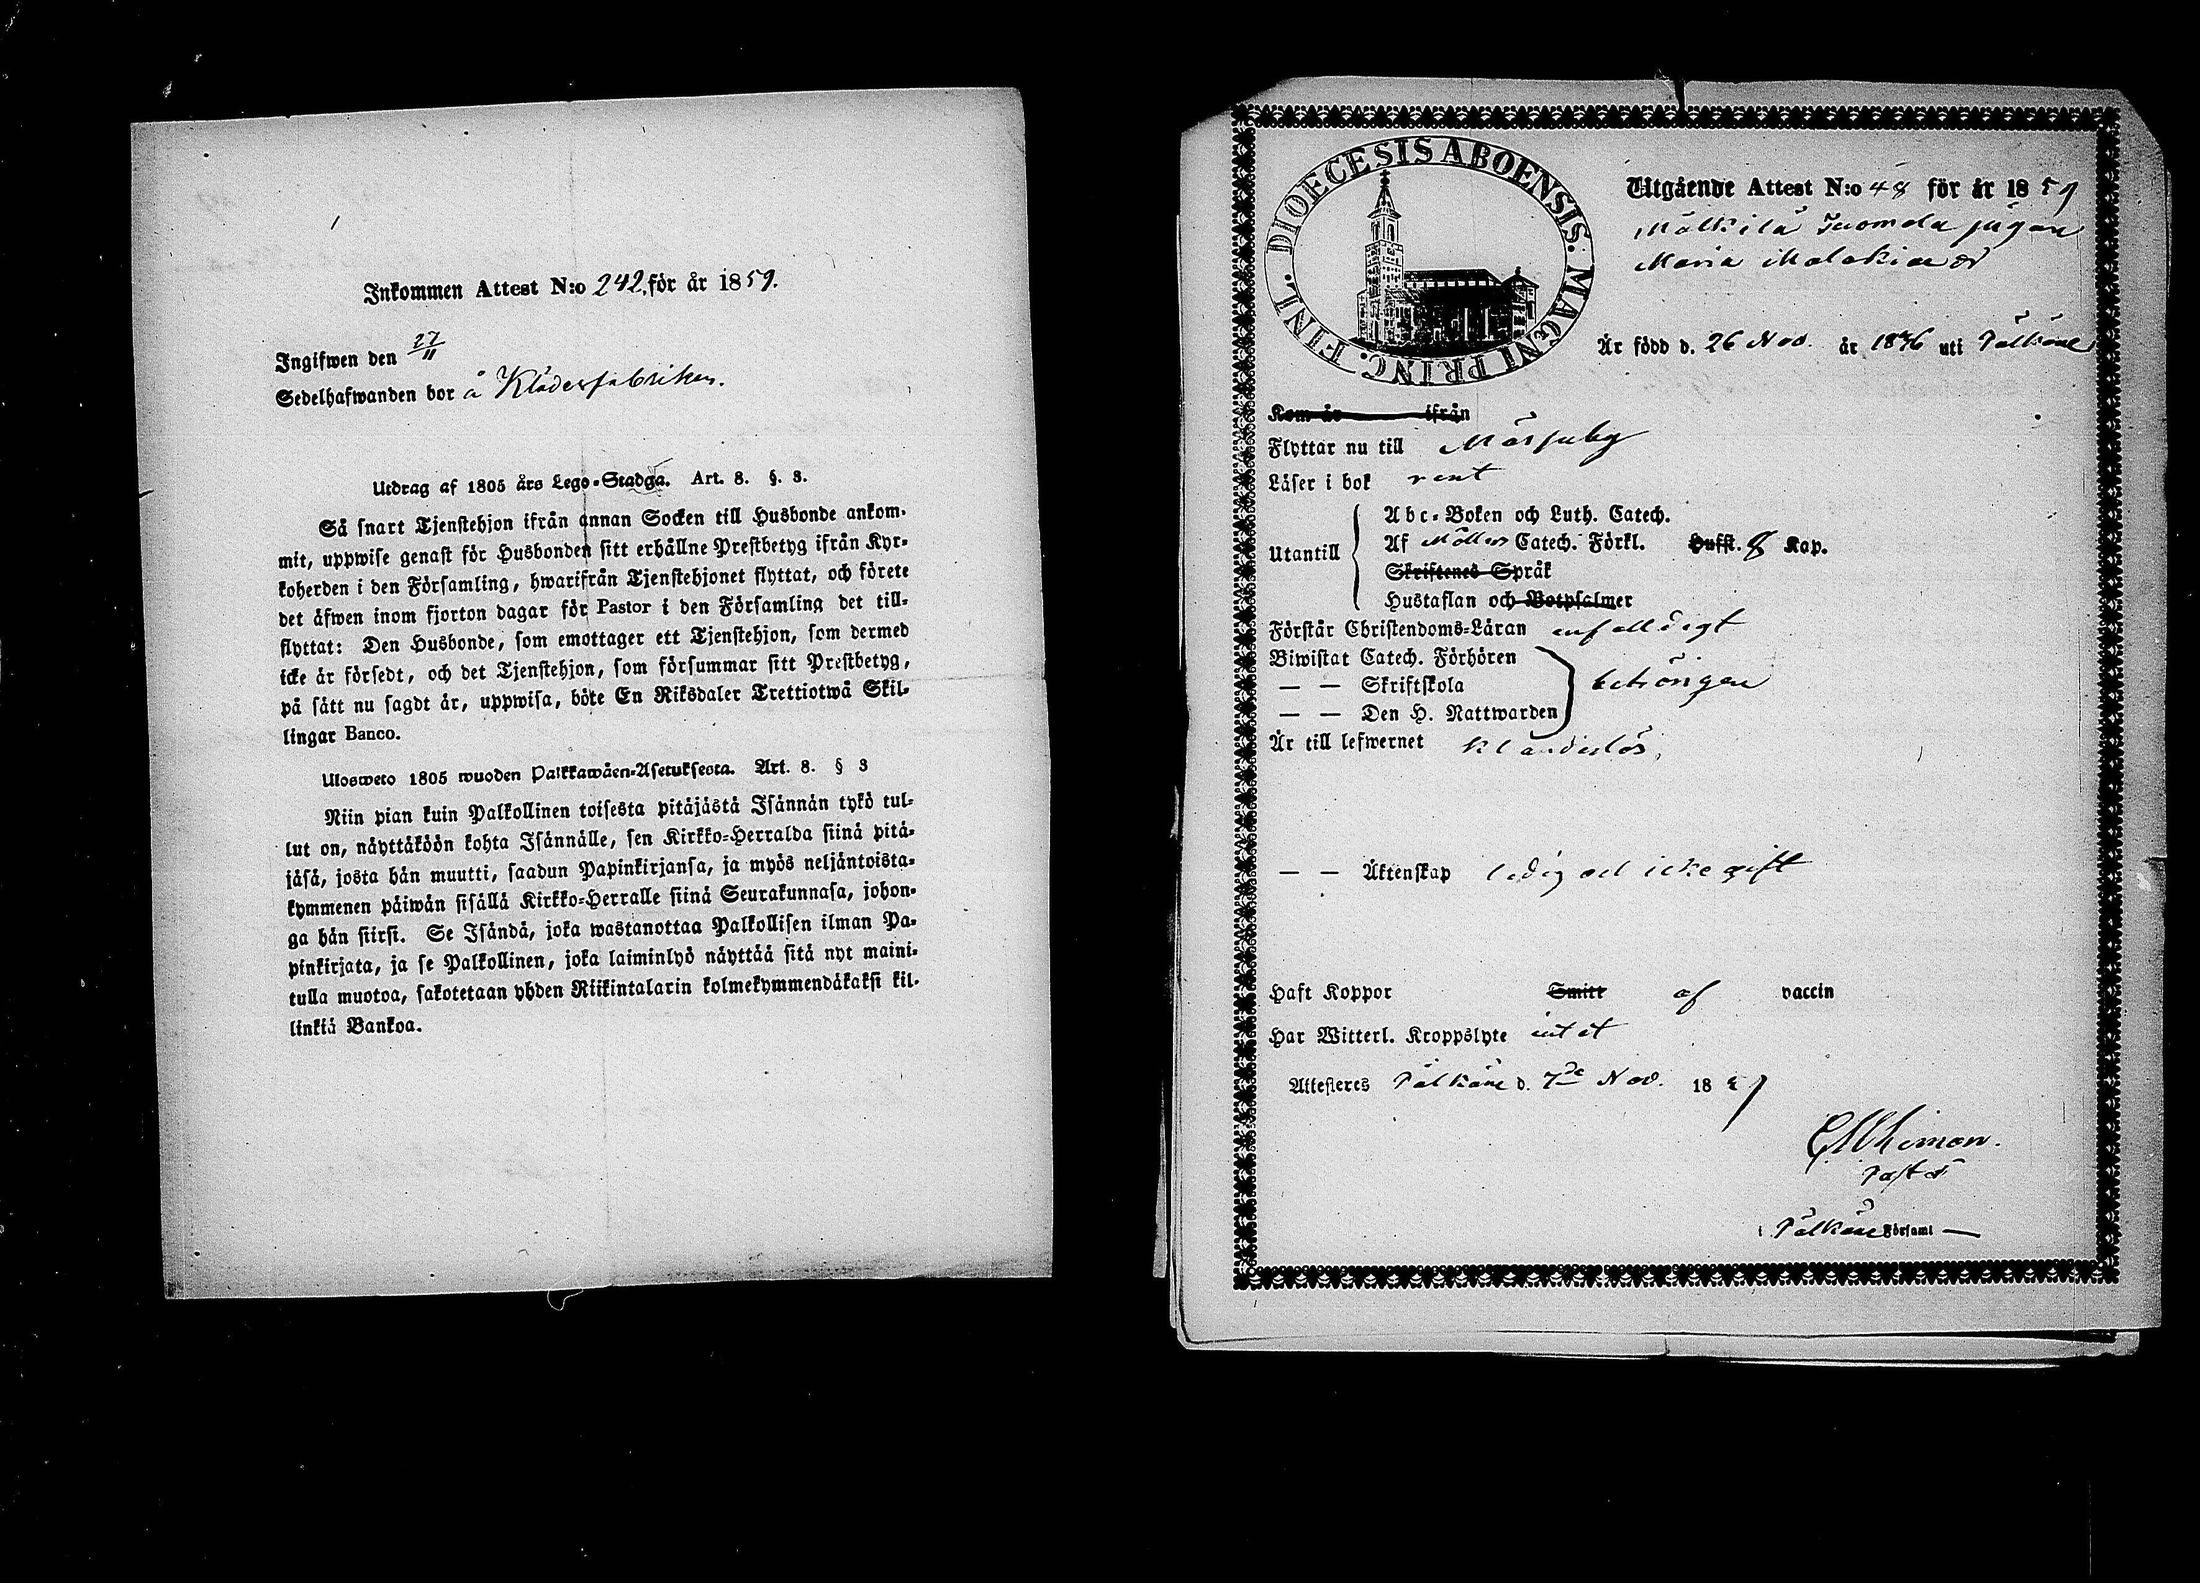 Inkommen Attest N:o 242. för år 1859.
Ingifwen den 27/11
Sedelhafwanden bor å Klädesfabriken.
Utdrag af 1805 års Lego-Stadga. Art. 8. §. 3.
Så snart Tjenstehjon ifrån annan Socken till Husbonde ankom-
mit, uppwise genast för Husbonden sitt erhållne Prestbetyg ifrån Kyr-
koherden i den Församling, hwarifrån Tjenstehjonet flyttat, och förete
det äfwen inom fjorton dagar för Pastor i den Församling det till-
flyttat: Den Husbonde, som emottager ett Tjenstehjon, som dermed
icke är försedt, och det Tjenstehjon, som försummar sitt Prestbetyg,
på sätt nu sagdt är, uppwisa, böte En Riksdaler Trettiotwå Skil-
lingar Banco.
Ulosweto 1805 wuoden Palkkawäen-Asetuksesta. Art. 8. § 3
Niin pian kuin Palkollinen toisesta pitäjästä Isännän tykö tul-
lut on, näyttäköön kohta Isännälle, sen Kirkko-Herralda siinä pitä-
jäsä, josta hän muutti, saadun Papinkirjansa, ja myös neljäntoista-
kymmenen päiwän sisällä Kirkko-Herralle siinä Seurakunnasa, johon-
ga hän siirsi. Se Isändä, joka wastanottaa Palkollisen ilman Pa-
pinkirjata, ja se Palkollinen, joka laiminlyö näyttää sitä nyt maini-
tulla muotoa, sakotetaan yhden Riikintalarin kolmekymmendäkaksi kil-
linkiä Bankoa.
DIOECESIS ABOENSIS. MAGNI PRINC. FINL.
Utgående Attest N:o 48 för år 1859
Mälkilä Tuomola pigan
Maria
Är född d. 26 Nov. år 1836 uti Pälkäne
Kom år ifrån
Flyttar nu till Mäsjuby
Läser i bok rent
Abc-Boken och Luth. Catech.
Utantill Af Möllers Catech. Förkl. Hufst. 8 Kap.
Skriftenes Språk
Hustaflan och Botpsalmer
Förstår Christendoms-Läran enfalldigt
Biwistat Catech. Förhören
— — Skriftskola behörigen
— — Den H. Nattwarden
Är till lefwernet klanderlös,
— — Äktenskap ledig och icke gift
Haft Koppor Smitt af vaccin
Har Witterl. Kroppslyte intet
Attesteres Pälkäne d. 7de Nov. 1859
Pastor
i Pälkäne Församl —